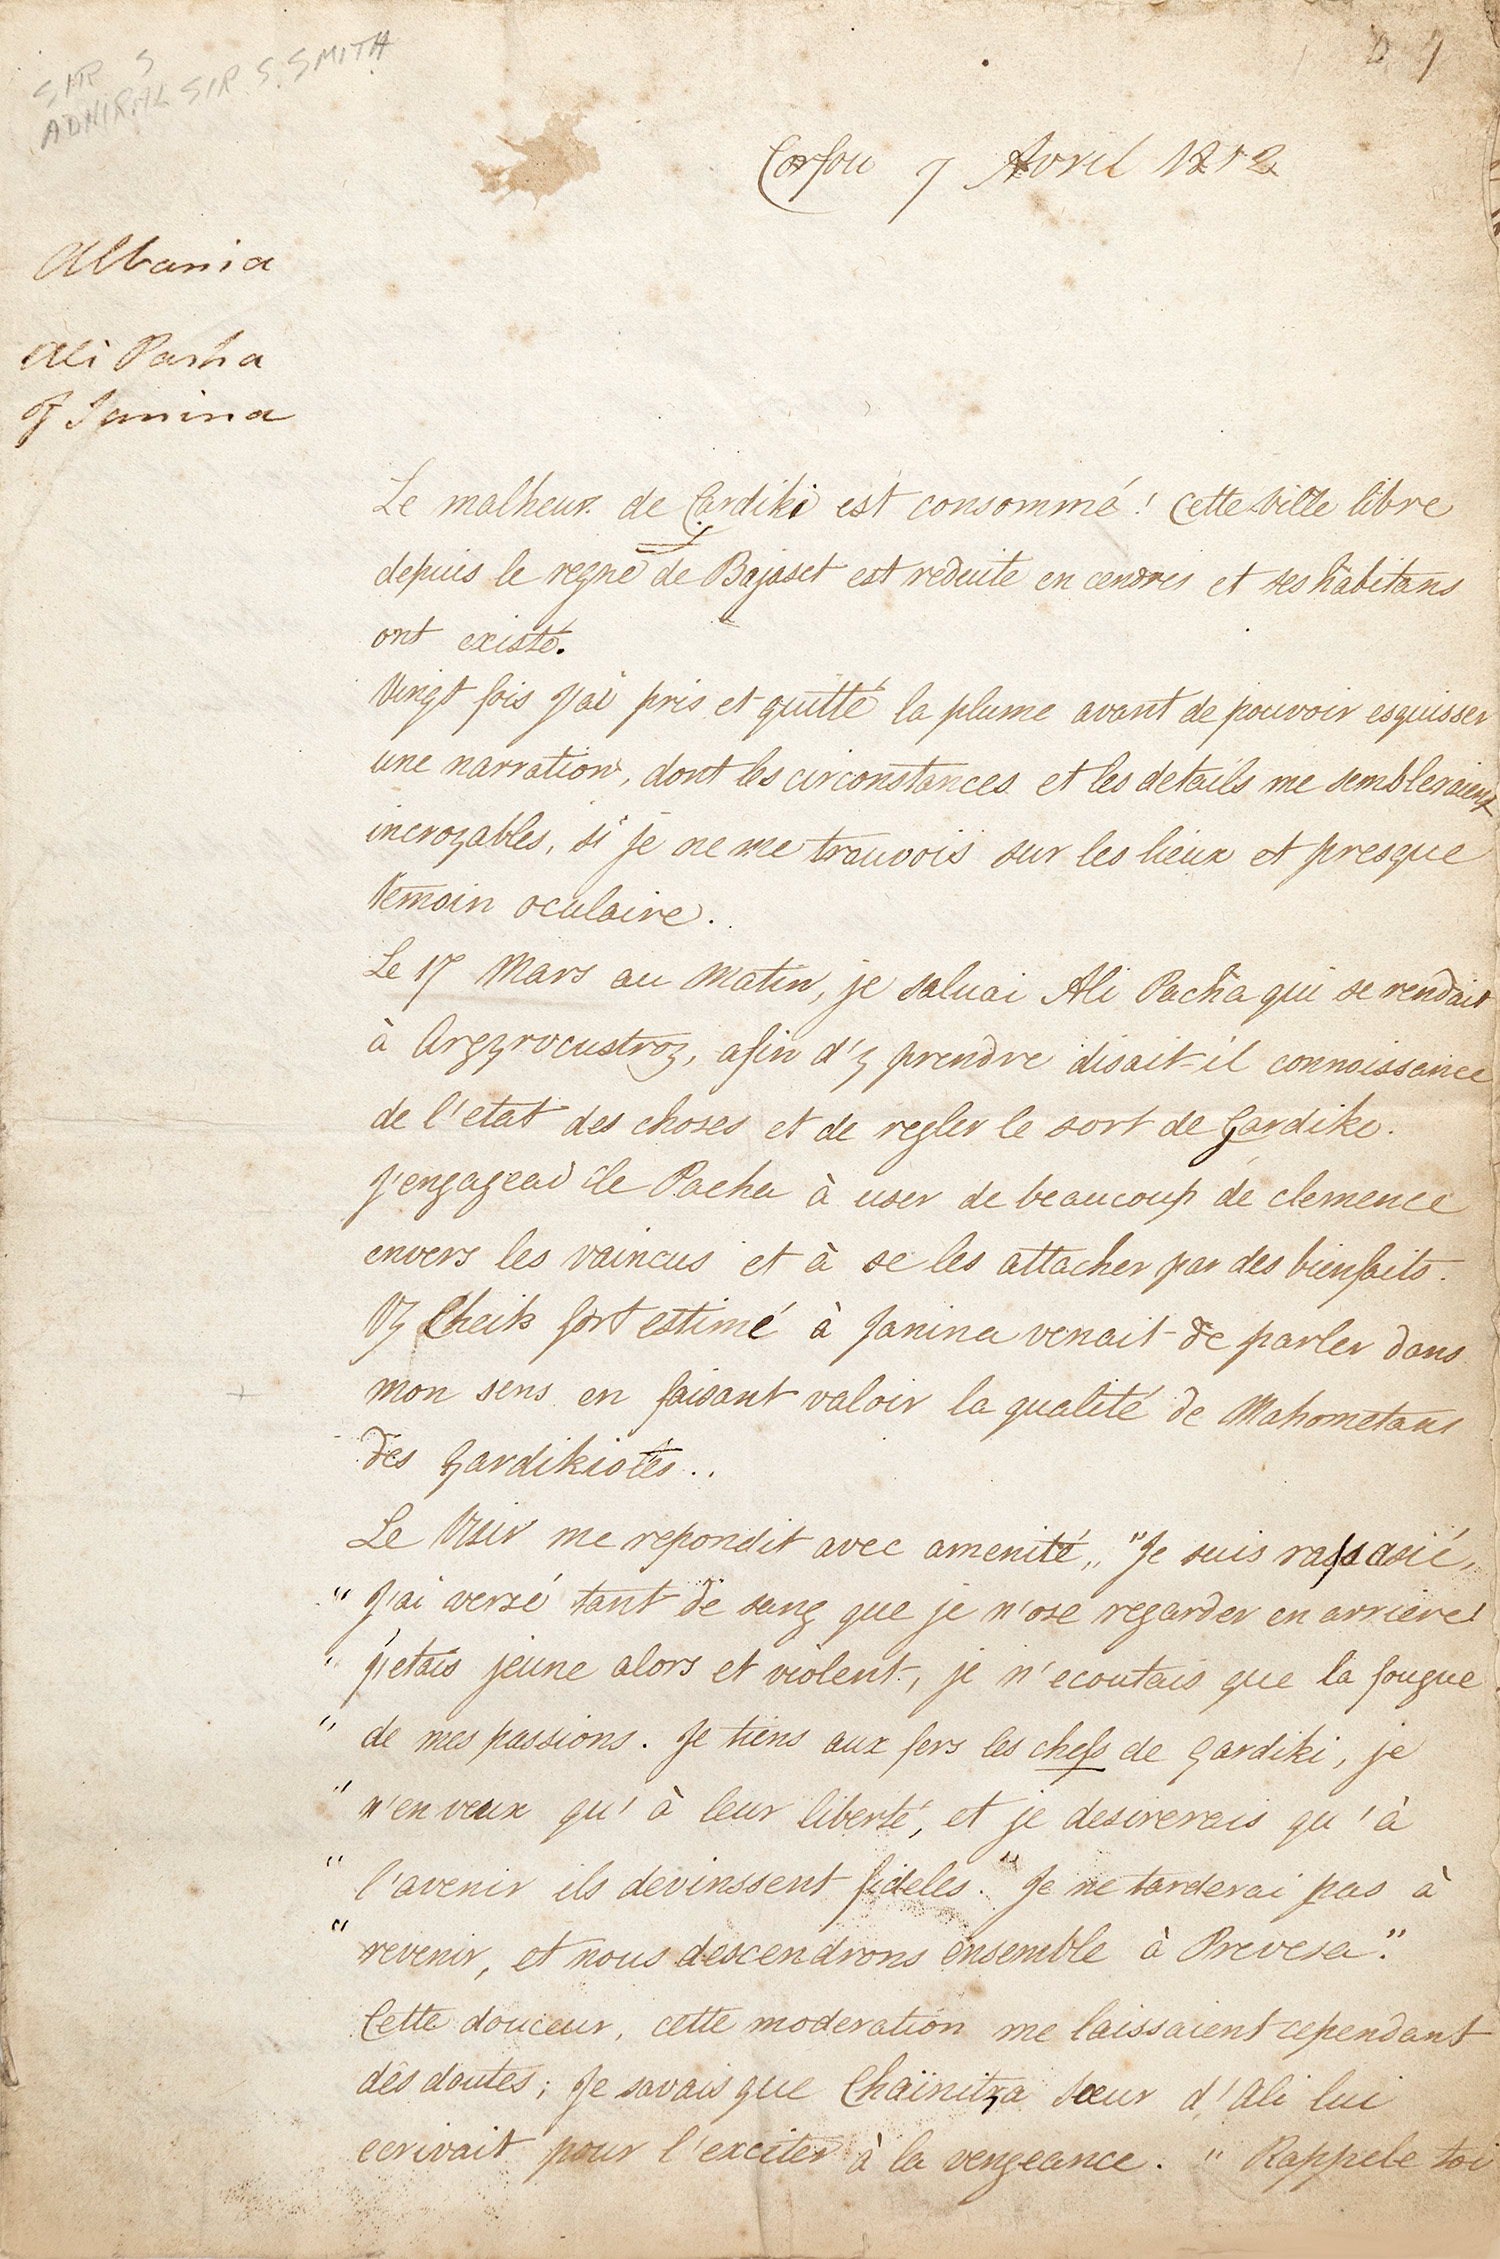 SIR S
ADMIRAL SIR. S. SMITH
Corfou 7 Avril 1812
Albania
Ali Pasha
of Janina
Le malheur de Gardiki est consommé! Cette ville libre
depuis le regne de Bajaset est reduite en cendres et ses habitans
ont existé.
Vingt fois j'ai pris et quitté la plume avant de pouvoir esquisser
une narration, dont les circonstances et les details me sembleraient
incroyables, si je ne me trouvois sur les lieux et presque
temoin oculaire.
Le 17 Mars au matin, je saluai Ali Pacha qui se rendait
à Argyrocastroy, afin d'y prendre disait-il connoissance
de l'etat des choses et de regler le sort de Gardiki.
J'engageai le Pacha à user de beaucoup de clemence
envers les vaincus et à se les attacher par des bienfaits.
Cheik fort estimé à Janina venait de parler dans
mon sens en faisant valoir la qualité de Mahometans
des Gardikiotes..
Le Visir me repondit avec amenité,, "Je suis rassasié,
" J'ai versé tant de sang que je n'ose regarder en arriere!
" j'etais jeune alors et violent, je n'ecoutais que la fougue
" de mes passions. Je tiens aux fers les chefs de Gardiki, je
" n'en veux qu'à leur liberté, et je desirerais qu'à
" l'avenir ils devinssent fideles." Je ne tarderai pas à
" revenir, et nous descendrons ensemble à Prevesa."
Cette douceur, cette moderation me laissaient cependant
dès doutes; Je savais que Chaïnitza sœur d'Ali lui
ecrivait pour l'exciter à la vengeance. " Rappele toi